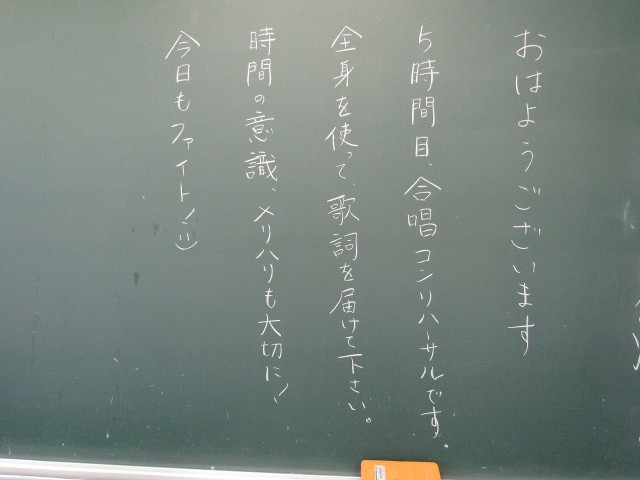 おはようございます
5時間目、合唱コンリハーサルです。
全身を使って、歌詞を届けて下さい。
時間の意識、メリハリも大切に!
今日もファイト!:)